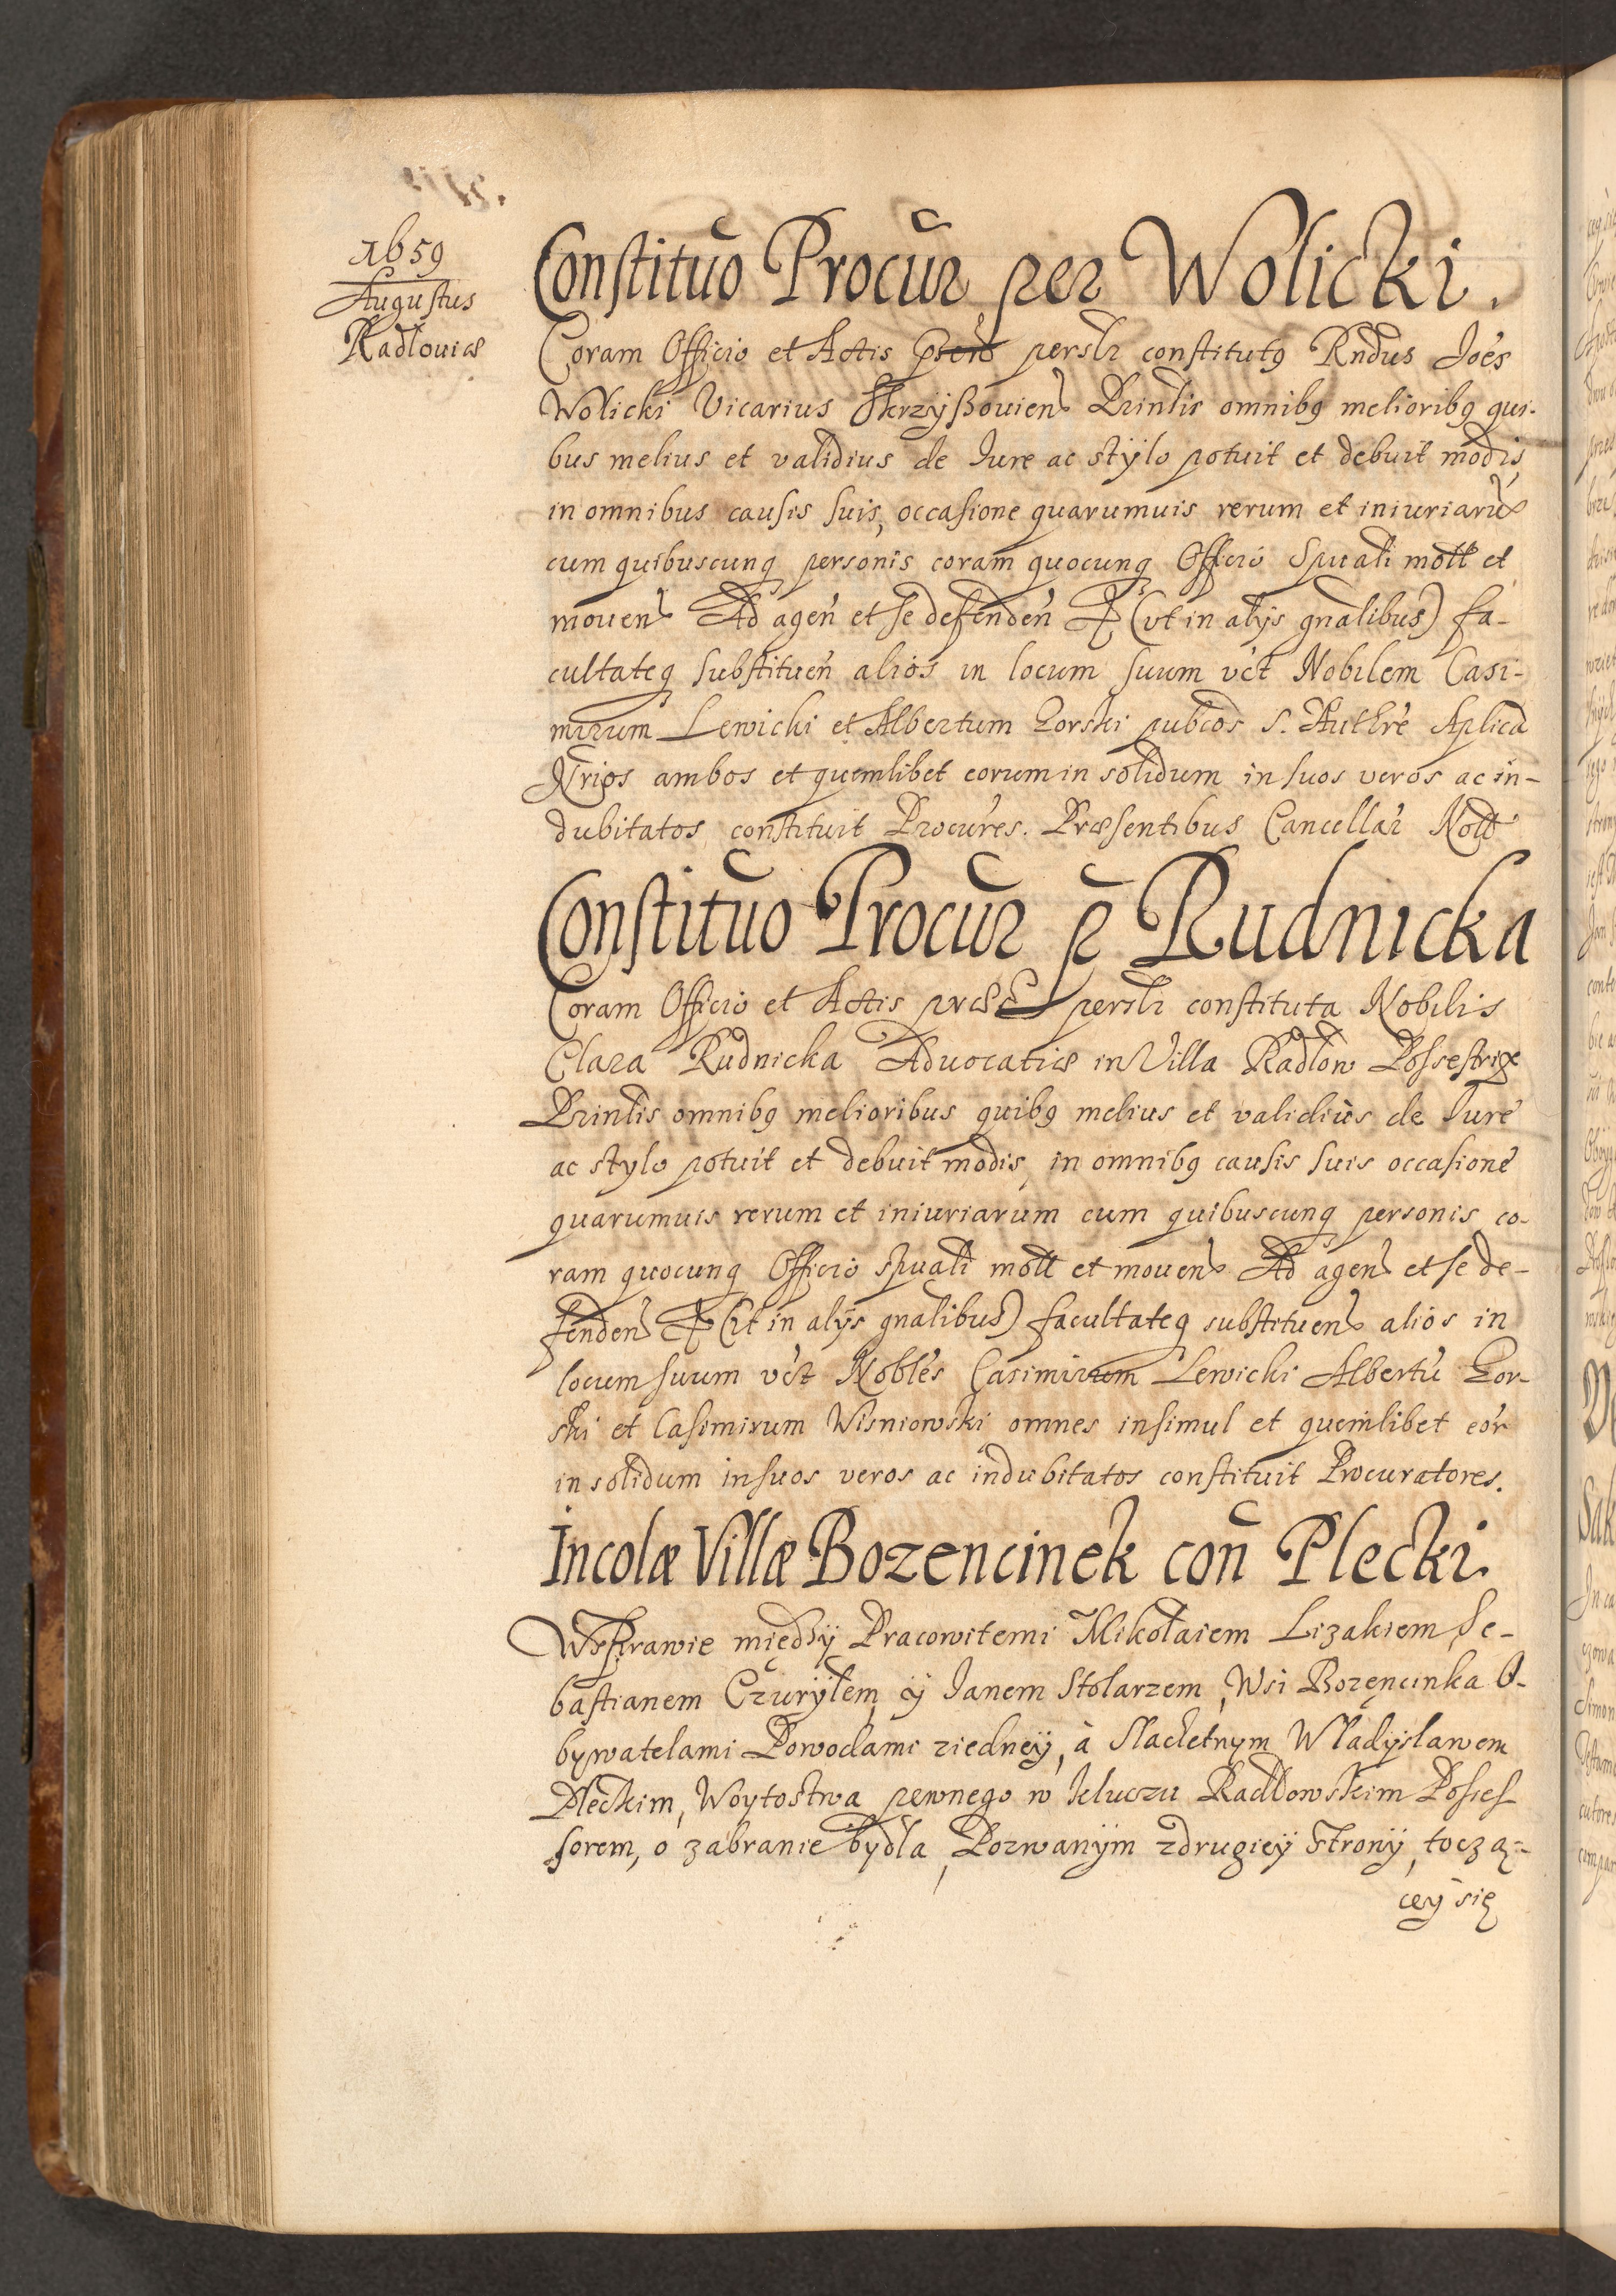 1659
Augustus
Radlouiæ
Constituo Procur per Wolicki.
Coram Officio et Actis pñen persłr constitutꝯ Rndus Joes
Wolicki Vicarius Skrzyßouien Prinlis omnibꝯ melioribꝯ qui-
bus melius et validius de Jure ac stylo potuit et debuit modis,
in omnibus causis suis, occasione quarumuis rerum et iniuriarũ
cum quibuscunq personis coram quocunq Officio Spuali mott et
mouen Ad agen et se defenden & (vt in alijs gnalibus) fa-
cultateq substituen alios in locum suum vct Nobilem Casi-
mirum Lewicki et Albertum Zorski pubcos S. Authre Aplica
Nrios ambos et quemlibet eorum in solidum in suos veros ac in-
dubitatos constituit Procures. Præsentibus Cancellar Nott
Constituo Procur p Rudnicka
Coram Officio et Actis præs persłr constituta Nobilis
Clara Rudnicka Aduocatiæ in Villa Radłow Possestrix
Prinlis omnibꝯ melioribus quibꝯ melius et validius de Jure
ac stylo potuit et debuit modis, in omnibꝯ causis suis occasione
quarumuis rerum et iniuriarum cum quibuscunq personis co-
ram quocunq Officio spuali mott et mouen Ad agen et se de-
fenden & (ut in alijs gnalibus) facultateq substituen alios in
locum suum vct Nobles Casimirum Lewicki Albertũ Zor-
ski et Casimirum Wisniowski omnes insimul et quemlibet eor
in solidum in suos veros ac indubitatos constituit Procuratores.
Incolæ Villæ Bozencinek con Plecki.
W sprawie między Pracowitemi Mikołaiem Lizakiem, Se-
bastianem Czuryłem, y Janem Stolarzem, Wsi Bozęcinka O-
bywatelami Powodami ziedney, à Slachetnym Władysławem
Pleckim, Woytostwa pewnego w kluczu Radłowskim Posses-
sorem, o zabranie bydła, Pozwanym zdrugiey Strony, toczą-
cey się